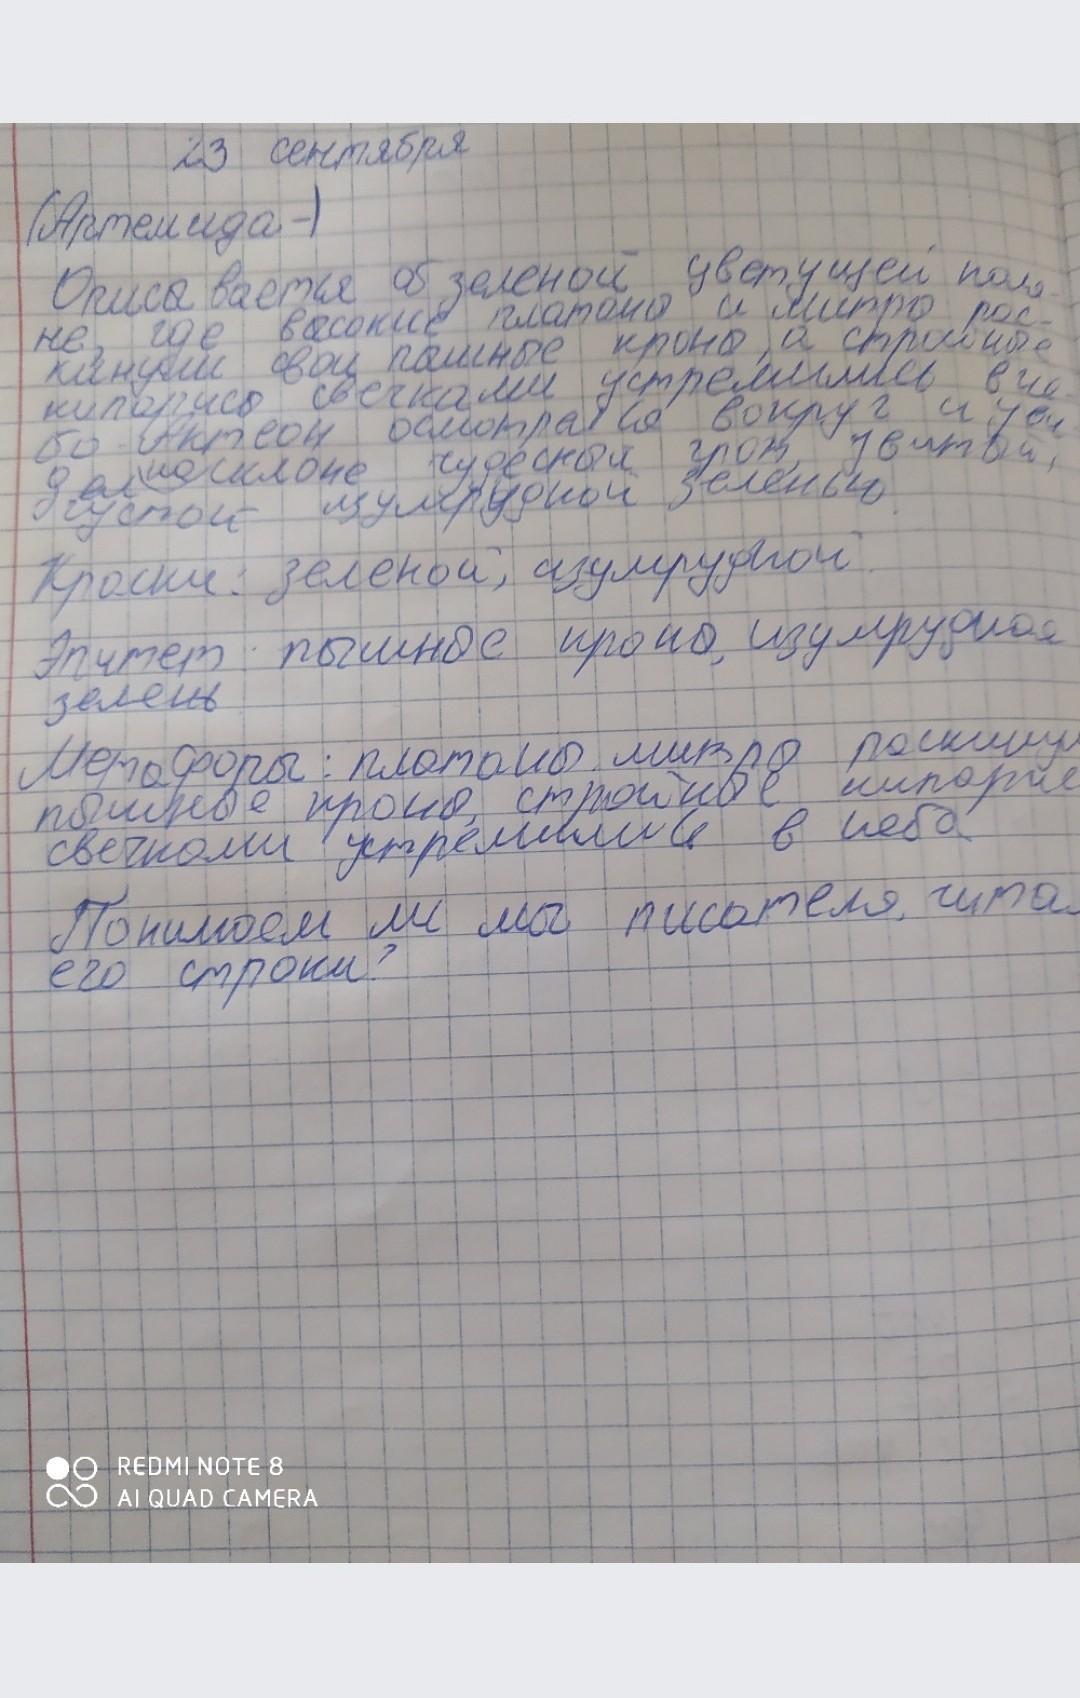 23 сентября
(Артемида-)
Описывается об зеленой цветущей поля-
не, где высокие платаны и митра рас-
кинули свои пашные кроны, а стройные
кипарисы свечками устремились в не-
бо. Актеон осмотрался вокруг и уви
дел на склоне чудесный грот, звитый,
густой изумрудной зеленью
Краски: зеленой, изумрудной
Эпитет: пышные кроны, изумрудная
зелень
Метафоры: платаны митры раскинул
пышные кроны, стройные кипарис
свечками устремились в небо
Понимаем ли мы писателя, чита
его строки?
REDMI NOTE 8
AI QUAD CAMERA